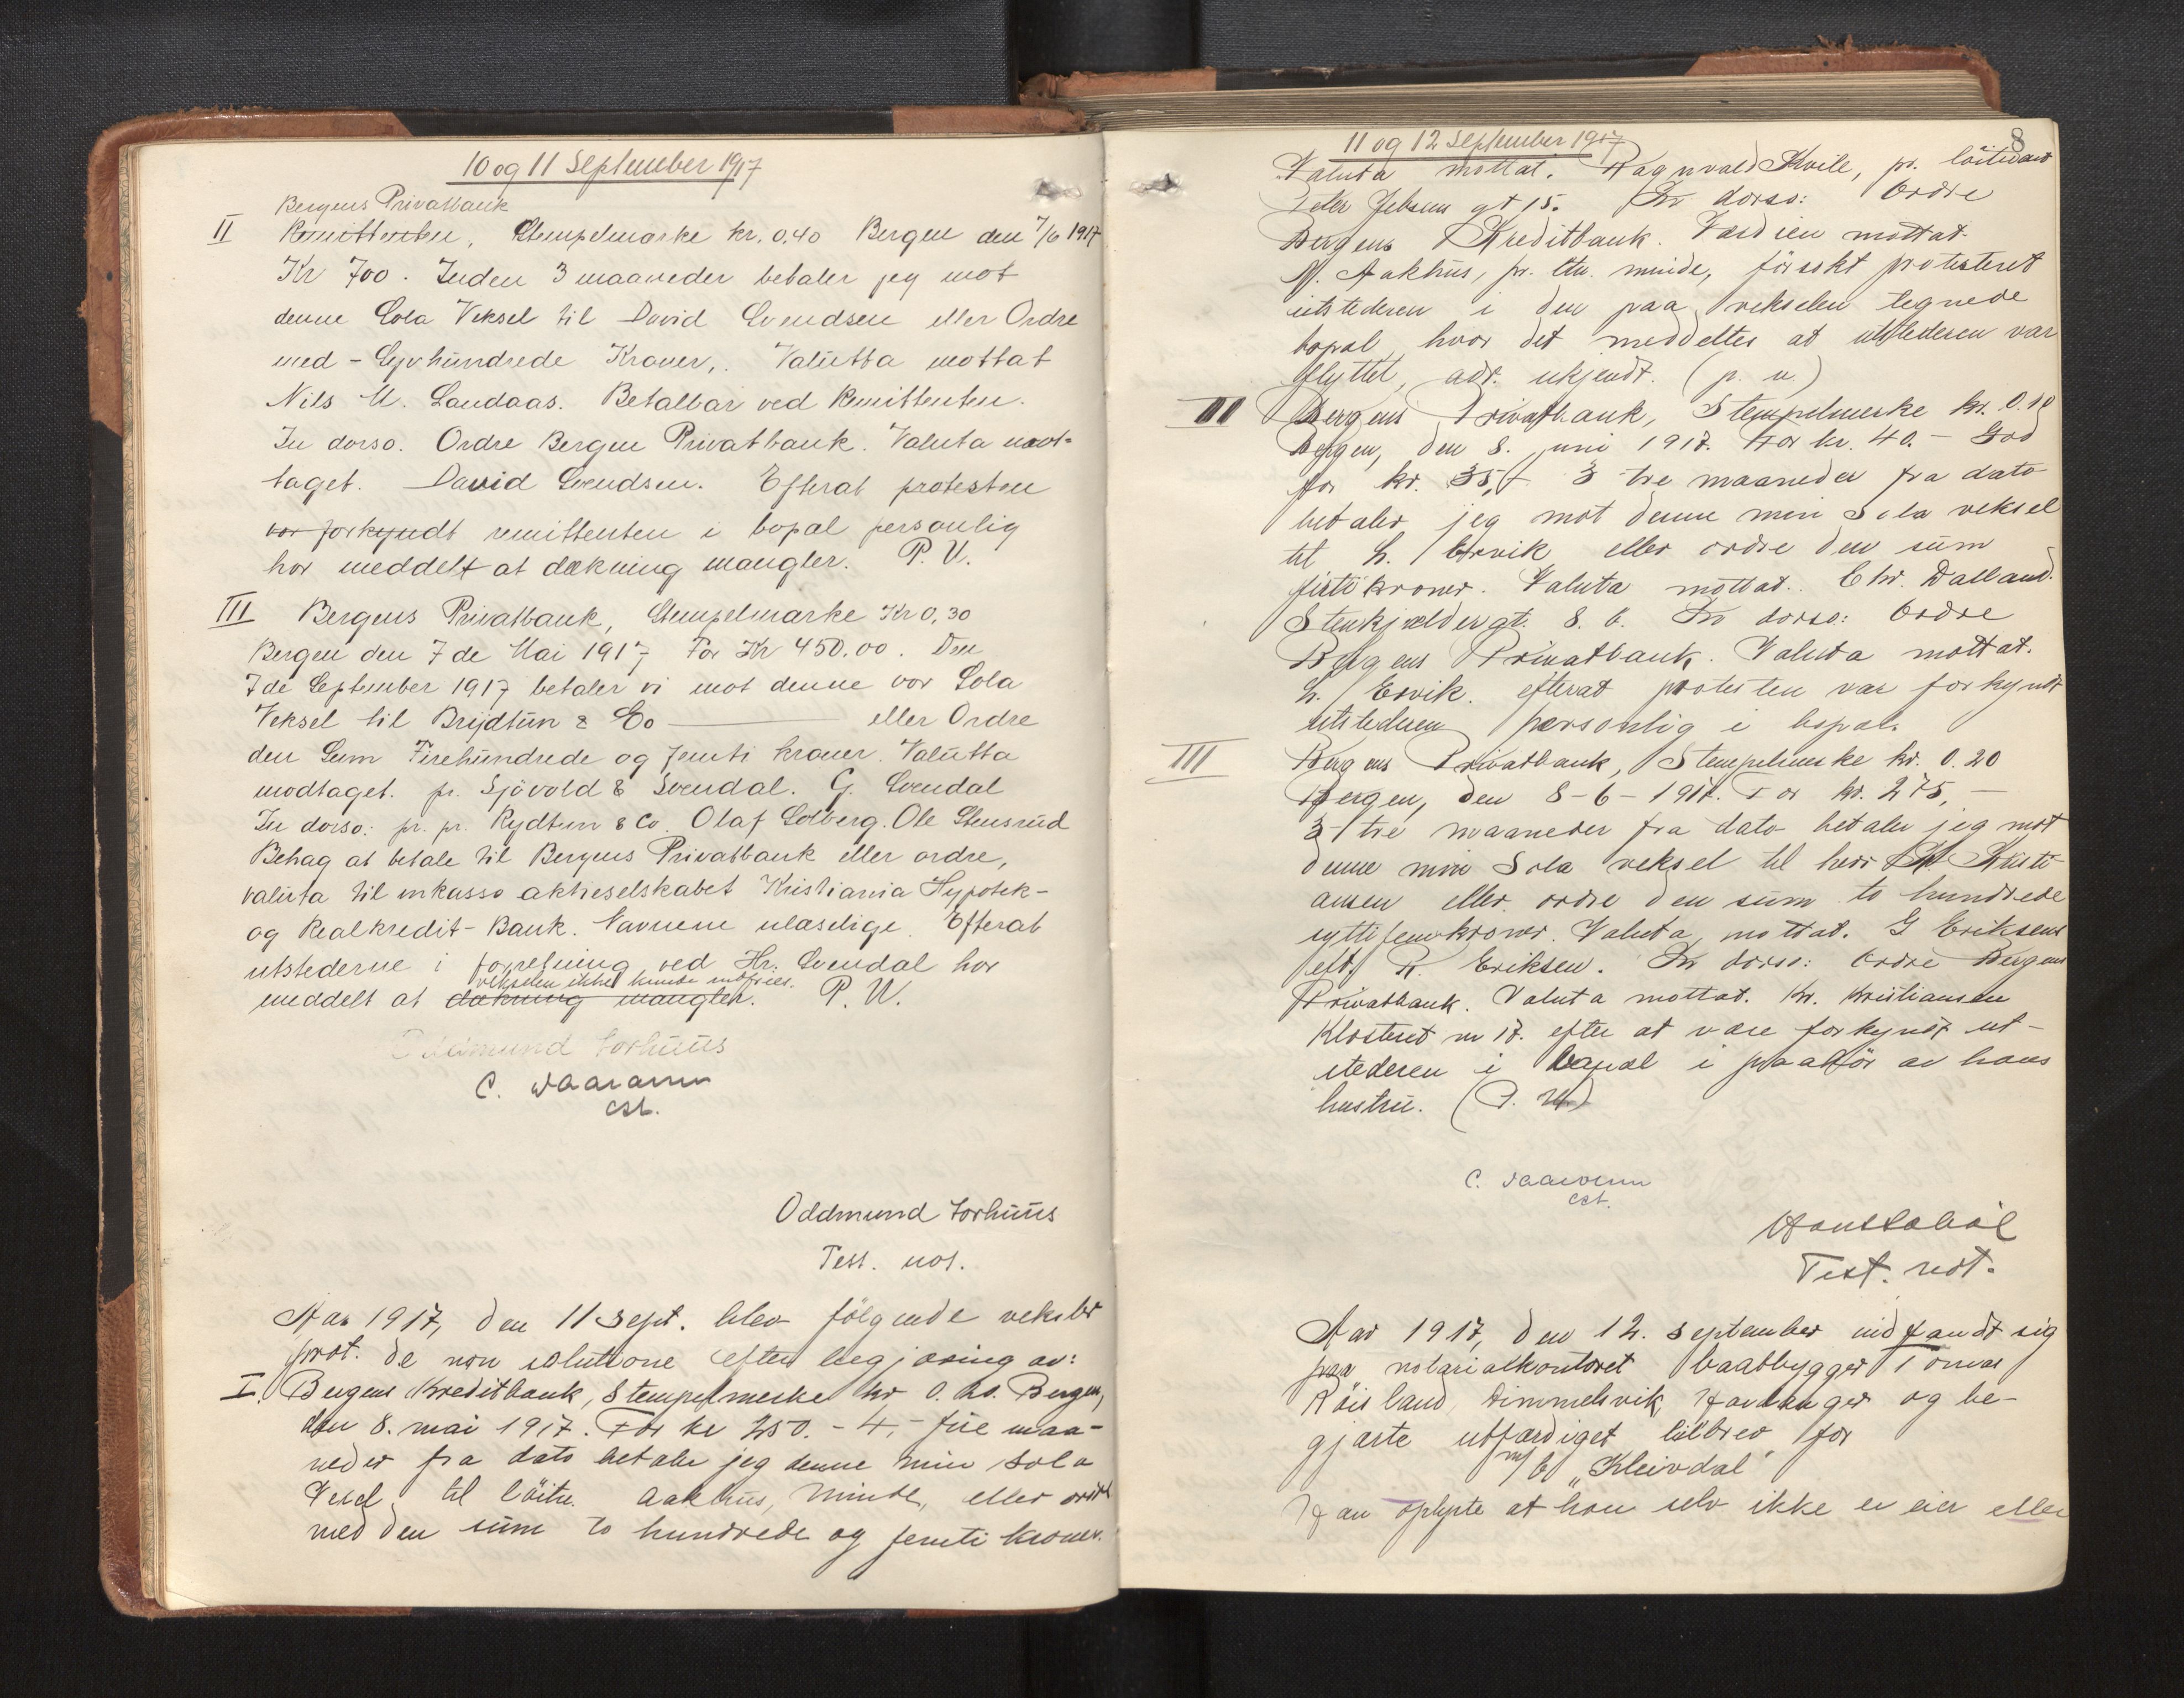 10 og 11 September 1917
Bergens Privatbank
II Remittenten, Stempelmærke kr. 0,40 Bergen den 7/6 1917
Kr 700. Inden 3 maaneder betaler jeg mot
denne Sola Veksel til David Svendsen eller Ordre
med - Syvhundrede Kroner,. Valutta mottat
Nils M. Landaas. Betalbar ved Remittenten.
In dorso. Ordre Bergen Privatbank. Valuta mot=
taget. David Svendsen. Efterat protesten
var forkyndt remittenten i bopal personlig
har meddelt at dækning mangler. P. U.
III Bergens Privatbank, Stempelmærke Kr 0,30
Bergen den 7 de Mai 1917 For Kr 450.00. Den
7de September 1917 betaler vi mot denne vor Sola
Veksel til Brydtun & Co eller Ordre
den Sum Firehundrede og femti kroner. Valutta
modtaget. pr. Sjøvold & Svendal. G. Svendal
In dorso: pr. pr. Rydtun & Co. Olaf Solberg. Ole Stensrud
Behag at betale til Bergens Privatbank eller ordre,
valuta til inkasso aktieselskabet Kristiania Hypotek-
og Realkredit-Bank. Navnene ulæselige. Efterat
utstederne i forretning ved Hr. Svendal har
vekselen ikke kunde indfries.
meddelt at dækning mangler. P. U.
Oddmund Torhuus
C.
cst.
Oddmund Torhuus
Test. not.
Aar 1917, den 11 sept. blev følgende veksler
prot. de non solutione efter begjæring av:
I. Bergens Kreditbank, Stempelmerke kr 0. 20. Bergen,
den 8. mai 1917. For kr 250. - 4,- fire maa-
neder fra dato betaler jeg denne min sola
Veksel til löitn. Aakhus, Minde, eller ordre
med den sum to hundrede og femti kroner.
8
11 og 12 September 1917
Valuta mottat. Ragnvald Kvile, pr. löitnant
Peter Jebsens gt 15. In dorso: Ordre
Bergens Kreditbank. Værdien mottat
N. Aakhus, pr. ltn. minde, försøkt protesteret
utstederen i den paa vekselen tegnede
bopal, hvor det meddeltes at utstederen var
flyttet, adr. ukjendt. (p. u.)
III Bergens Privatbank, Stempelmerke kr. 0.10
Bergen, den 8. juni 1917. For kr. 40.- God
for kr. 35,- 3 tre maaneder fra dato
betaler jeg mot denne min Sola veksel
til L. Ervik eller ordre den sum
firti kroner. Valuta mottat. Chr. Dalland.
Stenkjældergt. 8. b. In dorso: Ordre
Bergens Privatbank. Valuta mottat.
L. Ervik. efterat protesten var forkyndt
utstederen personlig i bopal.
III Bergens Privatbank, Stempelmerke kr. 0.20
Bergen, den 8-6-1917. For kr. 275,-
3 tre maaneder fra dato betaler jeg mot
denne min Sola veksel til herr Kr. Kristi
ansen eller ordre den sum to hundrede
sytti fem kroner. Valuta mottat. G Eriksens
eft. R. Eriksen. In dorso: Ordre Bergens
Privatbank. Valuta mottat. Kr. Kristiansen
Klosteret nr 17. efter at være forkyndt ut-
stederen i bopæl i paahör av hans
hustru. (P. U.)
C.
cst.
Test. not.
Aar 1917, den 12. september indfandt sig
paa notarialkontoret baatbygger Tomas
Röisland, Dimmelsvik, Hardanger og be-
gjærte utfærdiget bilbrev for
m/b „Kleivdal"
Han oplyste at han selv ikke er eier eller